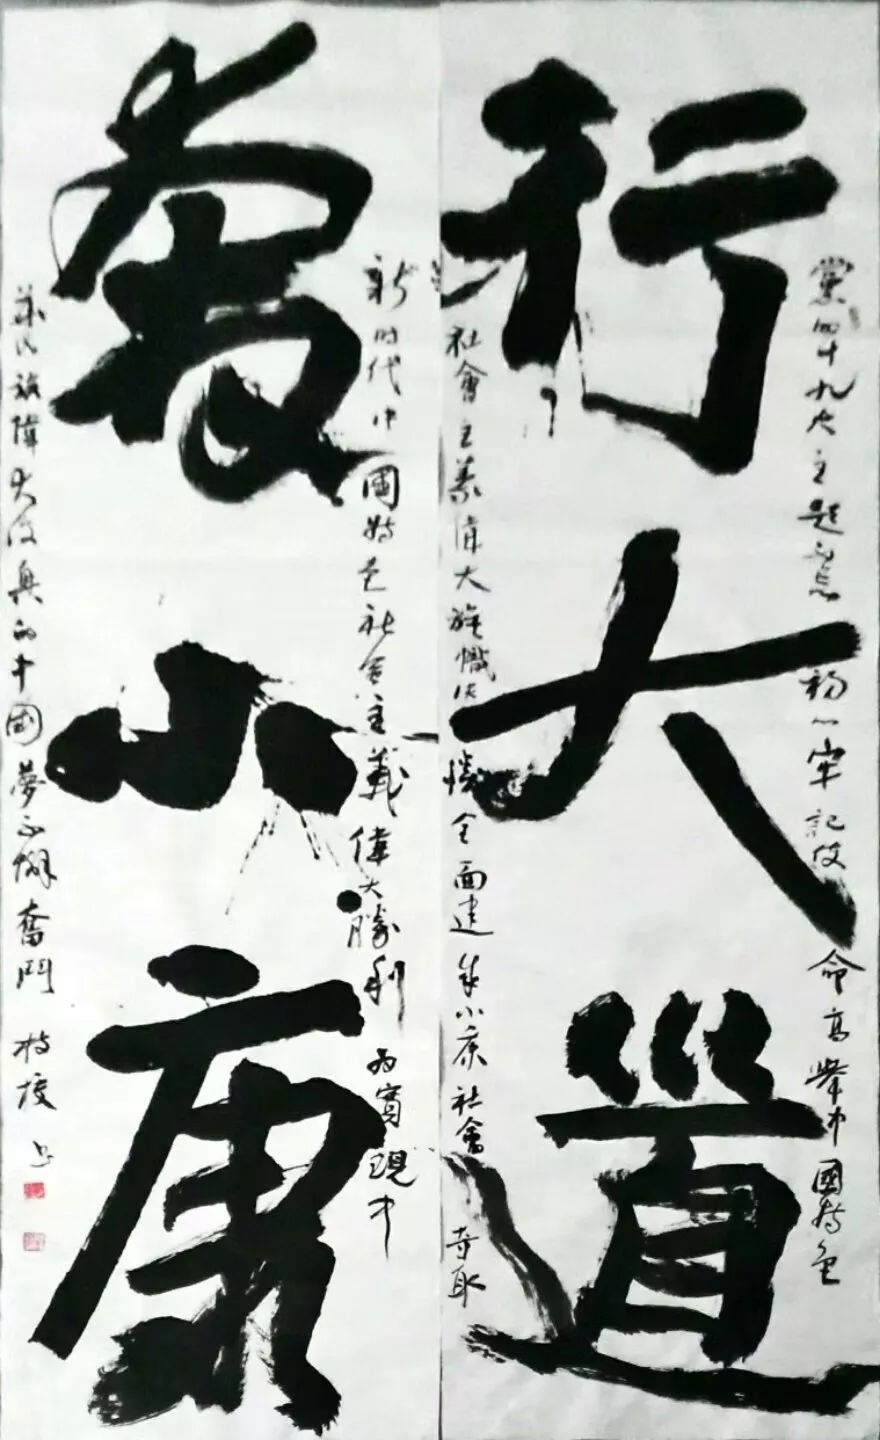 行大道
黨的十九大主題不忘初心牢記使命高舉中國特色
社會主義偉大旗幟决勝全面建成小康社會取
小康
新时代中國特色社會主義偉大勝利為實現中
華民族偉大復興的中國夢不懈奮鬥